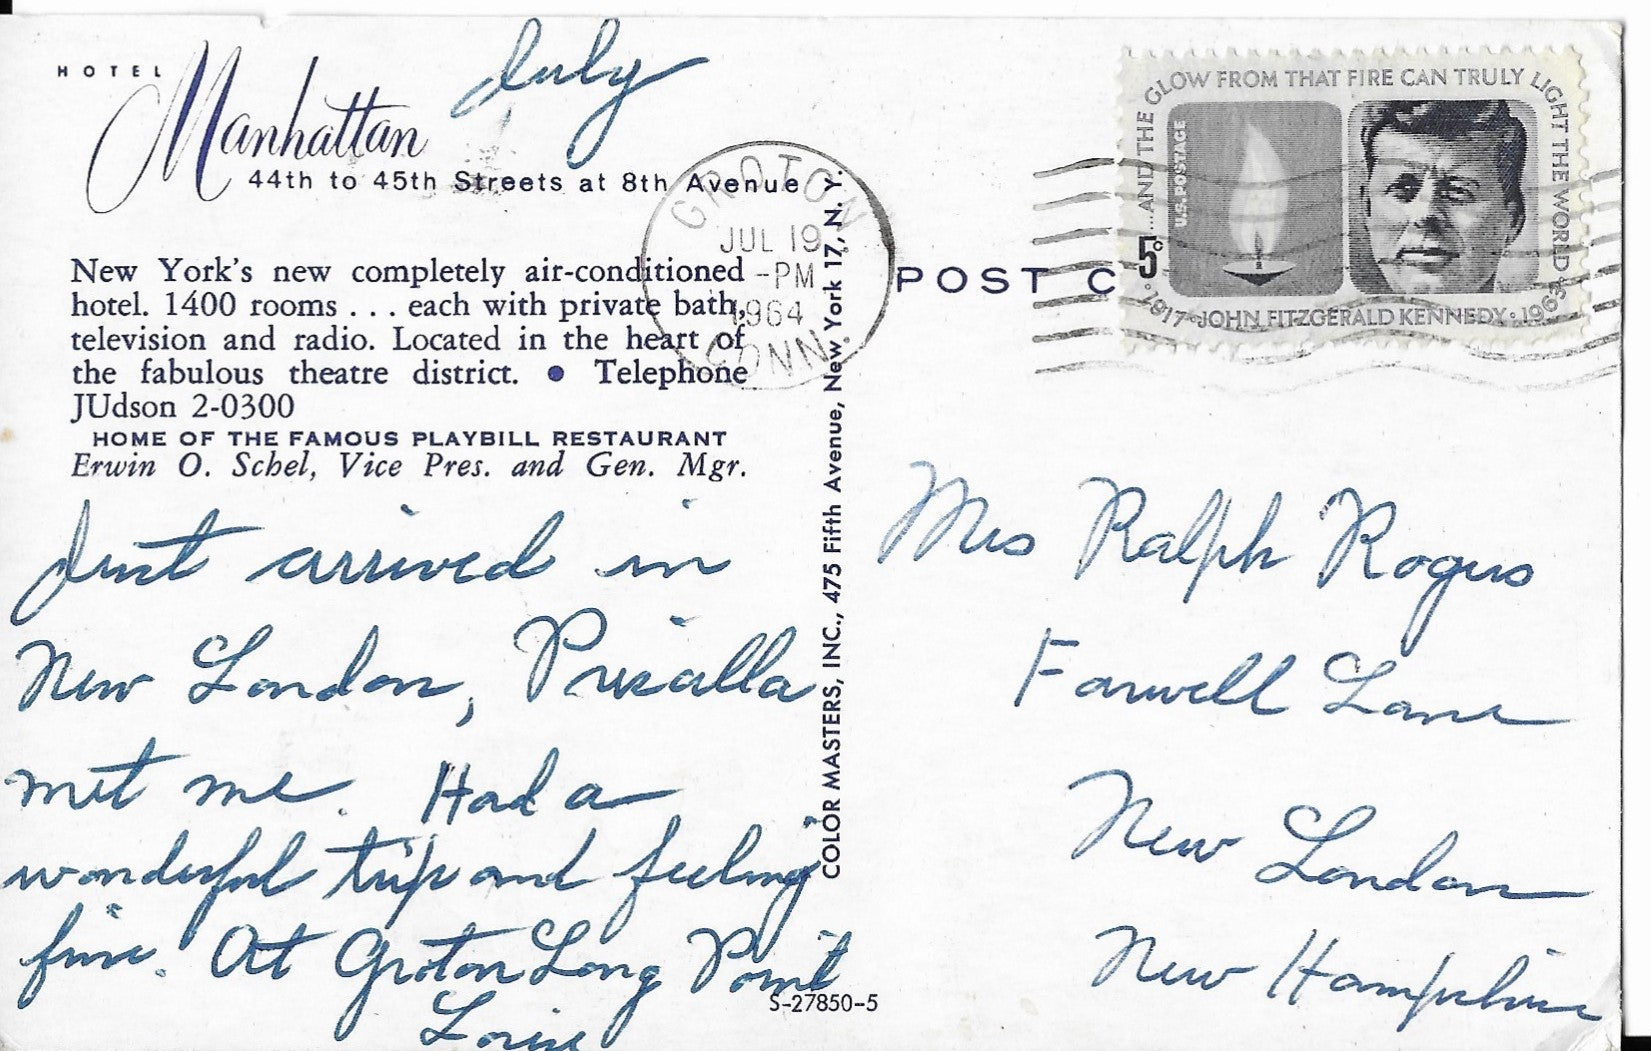 HOTEL
Manhattan
July
44th to 45th Streets at 8th Avenue
New York's new completely air-conditioned
hotel. 1400 rooms . . . each with private bath,
television and radio. Located in the heart of
the fabulous theatre district. • Telephone
JUdson 2-0300
HOME OF THE FAMOUS PLAYBILL RESTAURANT
Erwin O. Schel, Vice Pres. and Gen. Mgr.
Just arrived in
New London, Priscalla
met me. Had a
wonderful trip and feeling
fine. At Groton Long Point
Louise
GROTON
JUL 19
-PM
1964
CONN.
COLOR MASTERS, INC., 475 Fifth Avenue, New York 17, N. Y.
S-27850-5
POST C
...AND THE GLOW FROM THAT FIRE CAN TRULY LIGHT THE WORLD
U.S. POSTAGE
5c
1917·JOHN FITZGERALD KENNEDY·1963
Mrs Ralph Rogers
Farwell Lane
New London
New Hampshire